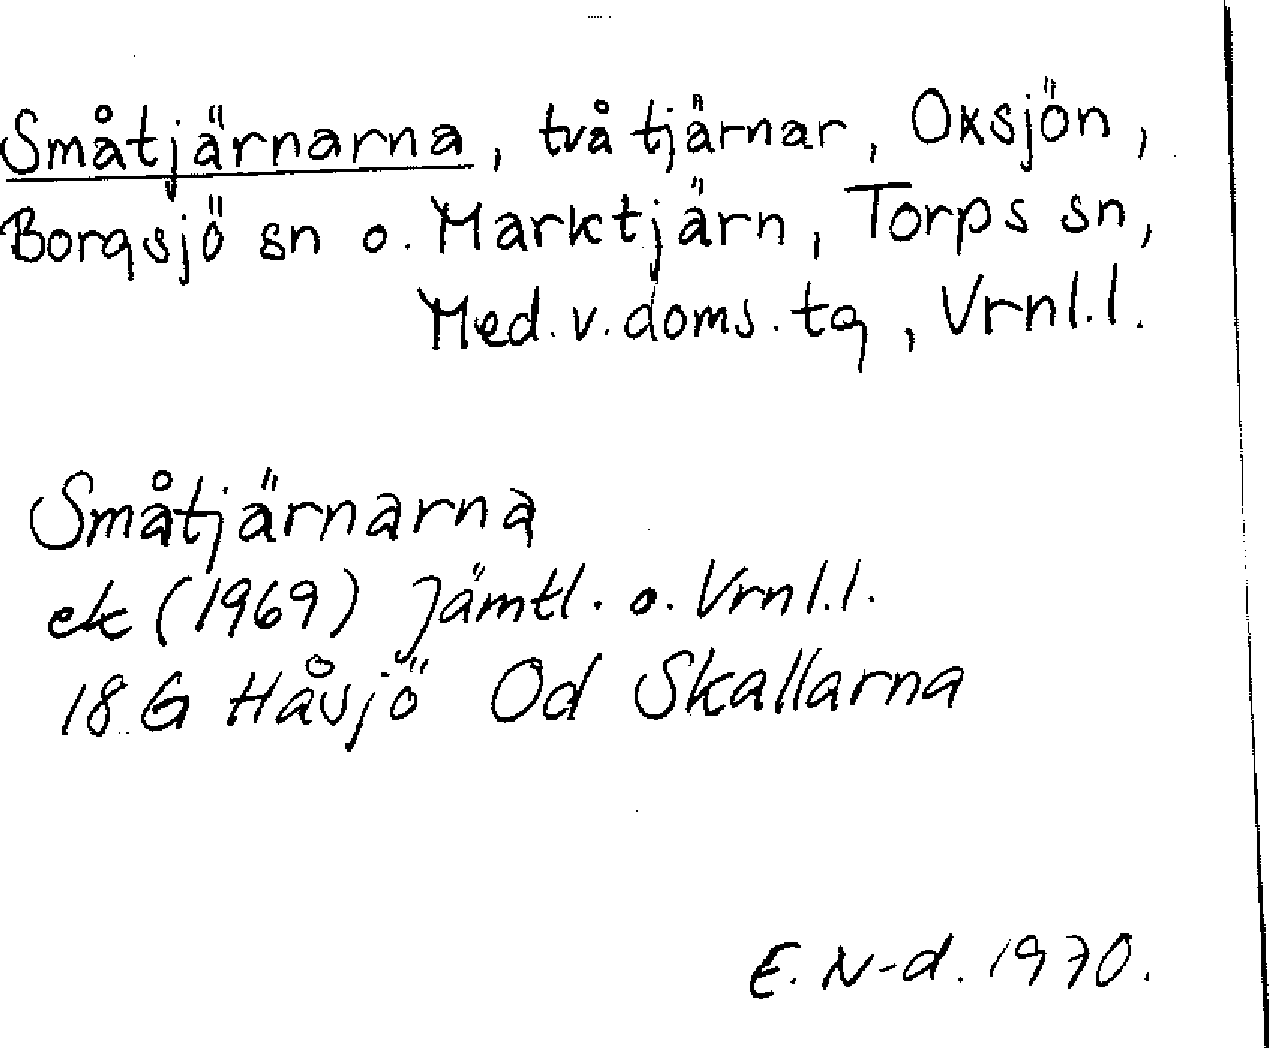 Småtjärnarna, två tjärnar, Oxsjön,
Borgsjö sn o. Marktjärn, Torps sn,
Med. v. doms. tg, Vrnl.l.
Småtjärnarna
ek (1969) Jämtl. o. Vrnl.l.
18 G Håsjö Od Skallarna
E. N-d. 1970.